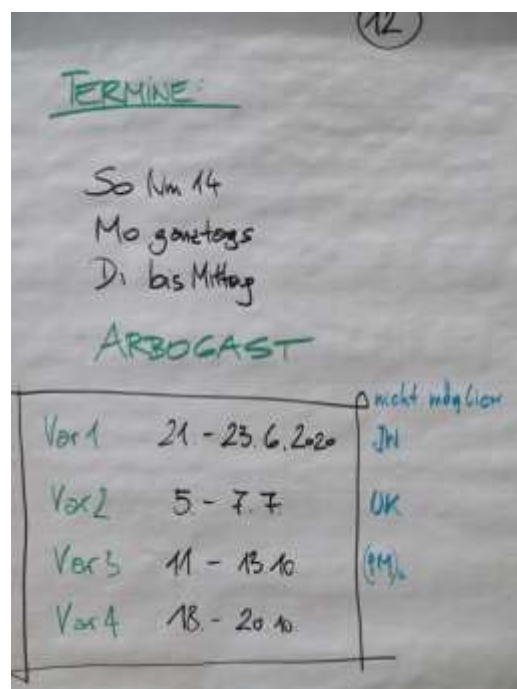 12
TERMINE:
So Nm 14
Mo ganztags
Di bis Mittag
ARBOGAST
nicht möglich
Var 1 21. - 23.6.2020 JW
Var 2 5. - 7.7. UK
Var 3 11 - 13.10
Var 4 18. - 20.10.